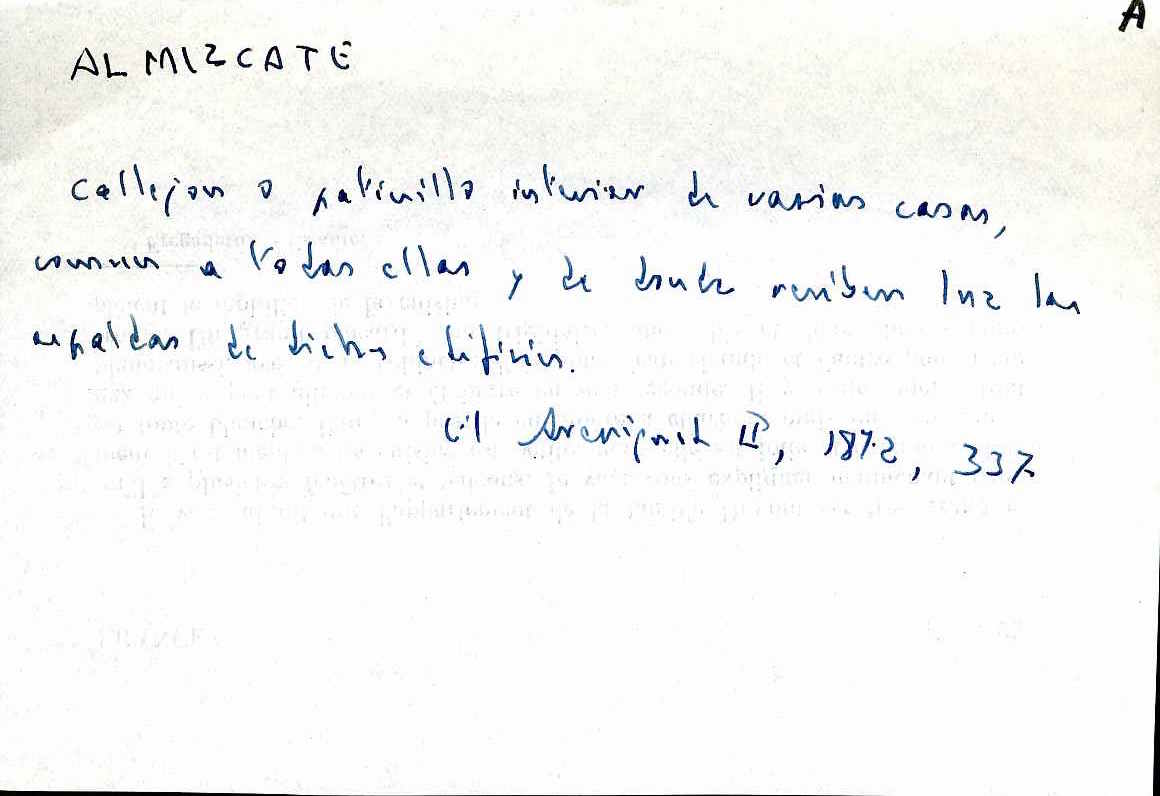 A
ALMIZCATE
callejon o patinillo interior de varias casas,
comun a todas ellas y de donde reciben luz las
espaldas de dichos edificios.
II, 1872, 337